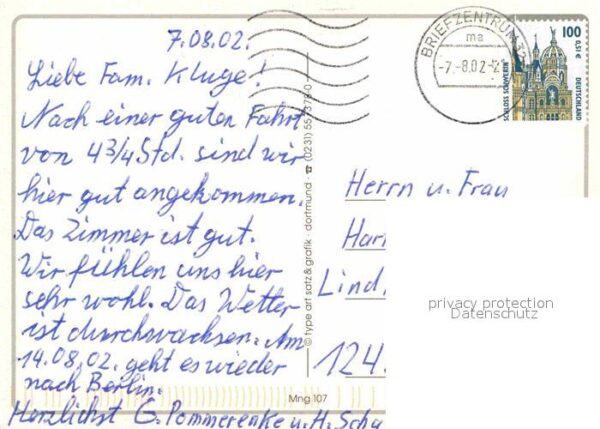 7.08.02.
Liebe Fam. Kluge!
Nach einer guten Fahrt
von 4 3/4 Std. sind wir
hier gut angekommen.
Das Zimmer ist gut.
Wir fühlen uns hier
sehr wohl. Das Wetter
ist durchwachsen. Am
14.08.02. geht es wieder
nach Berlin.
Herzlichst G. Pommerenke u. H. Scha
© type art satz & grafik · dortmund ☎ (0231)
Mng 107
BRIEFZENTRUM 32
ma
-7.-8.02-
SCHLOSS SCHWERIN
100
0,51 €
DEUTSCHLAND
Herrn u. Frau
Har
Lind,
124.
privacy protection
Datenschutz